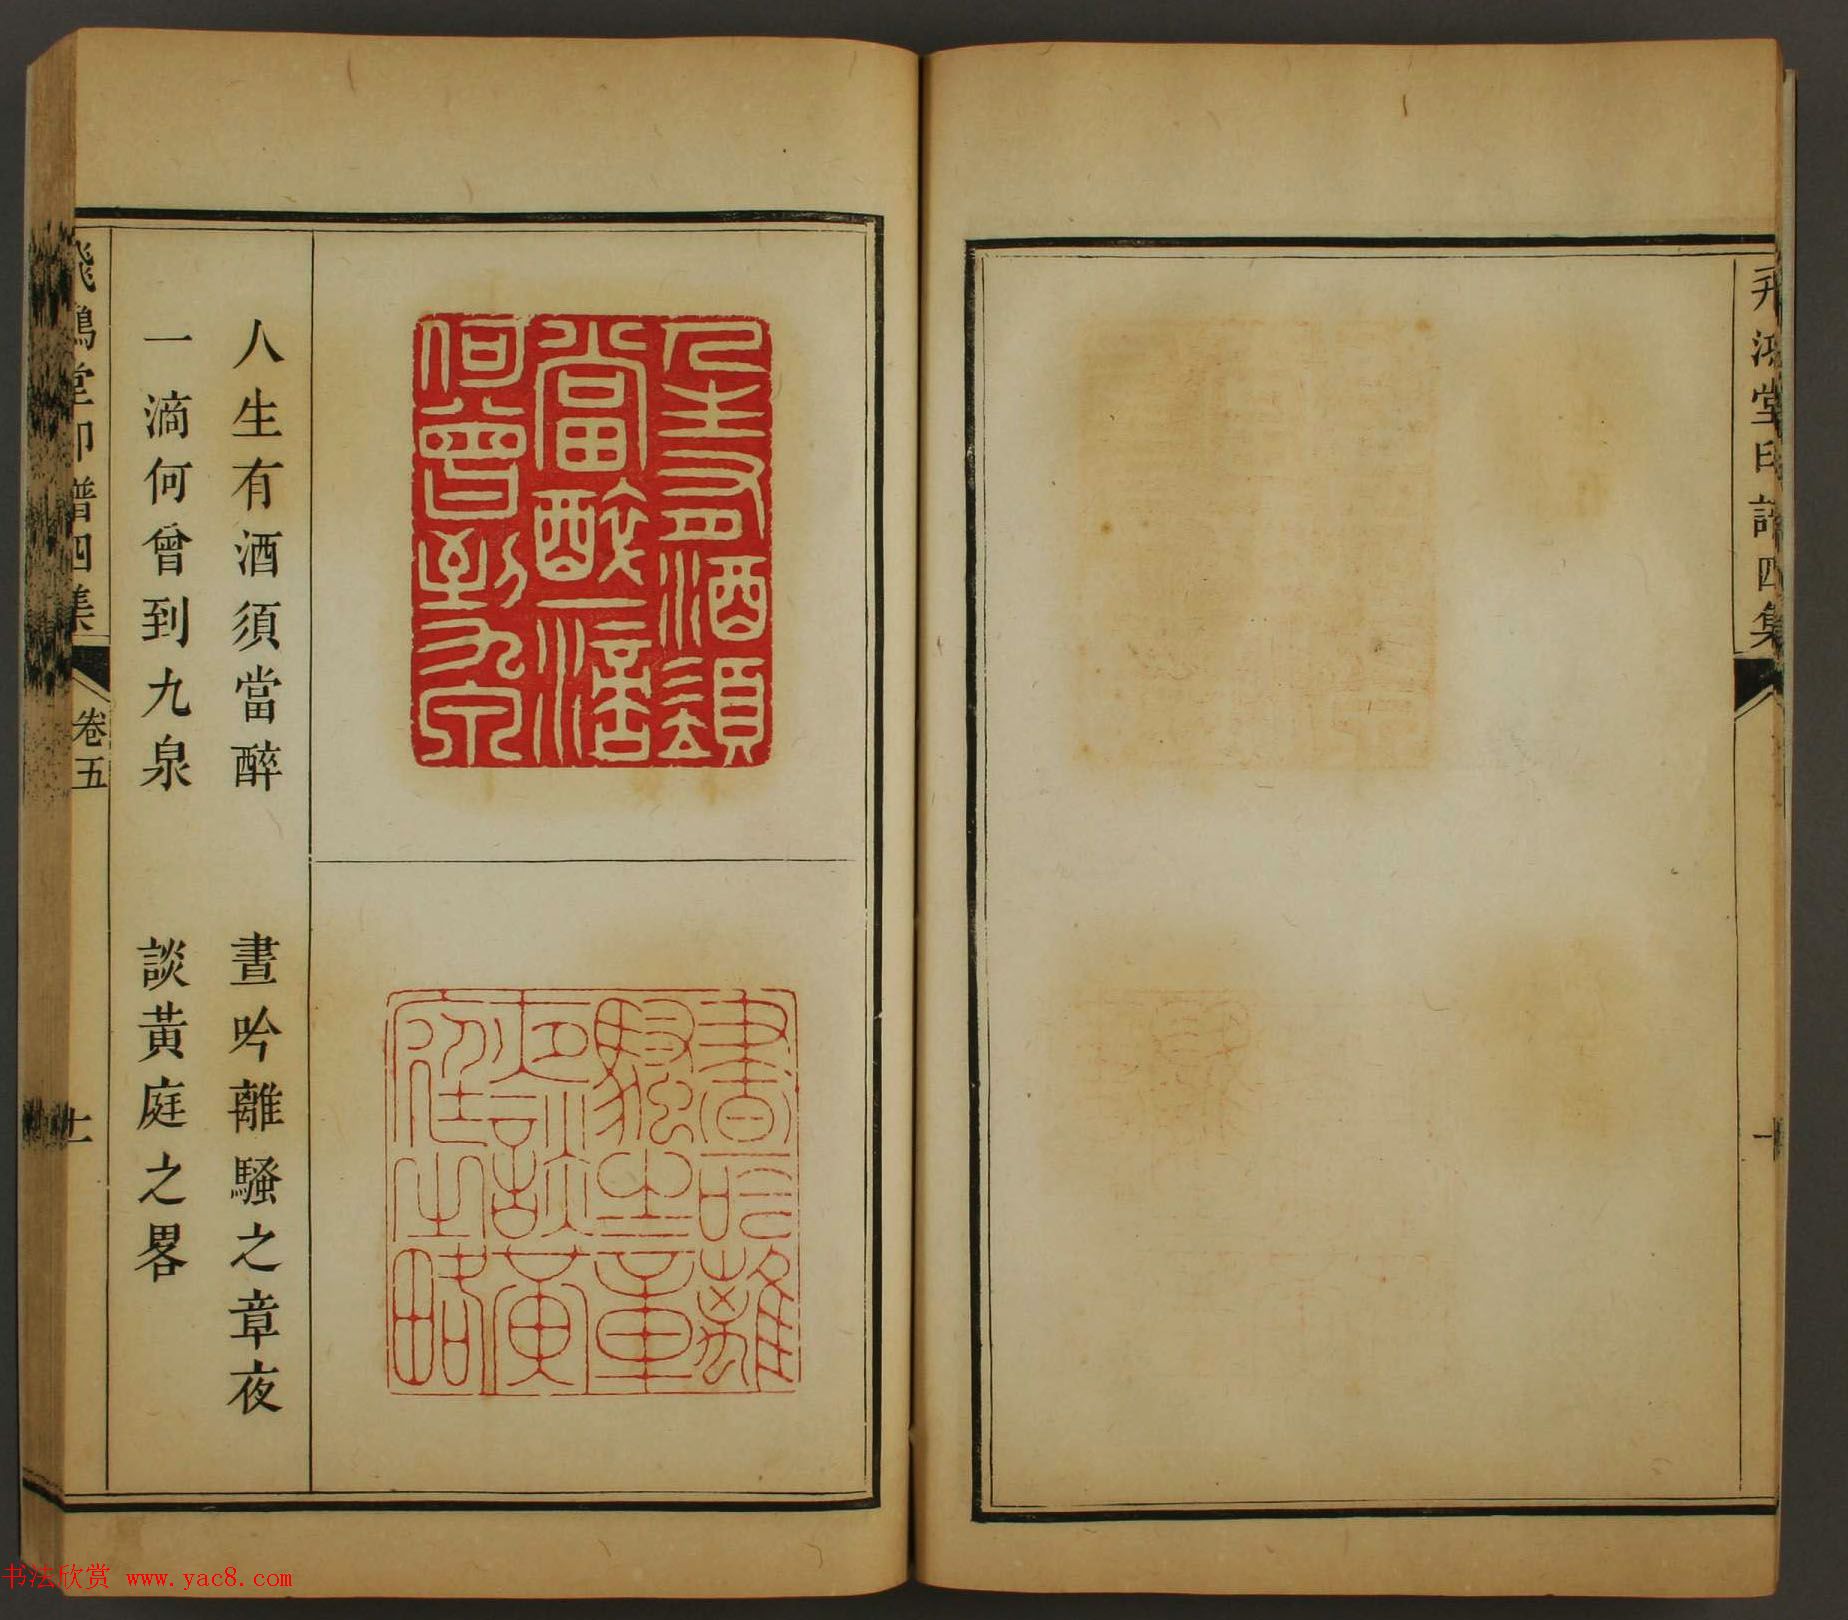 飛鴻堂印譜四集
十
人生有酒須當醉
一滴何曾到九泉
晝吟離騷之章夜
談黃庭之畧
人生有酒須
當醉一滴
何曾到九泉
晝吟離
騷之章
夜談黃
庭之略
飛鴻堂印譜四集
卷五
十一
书法欣赏 www.yac8.com